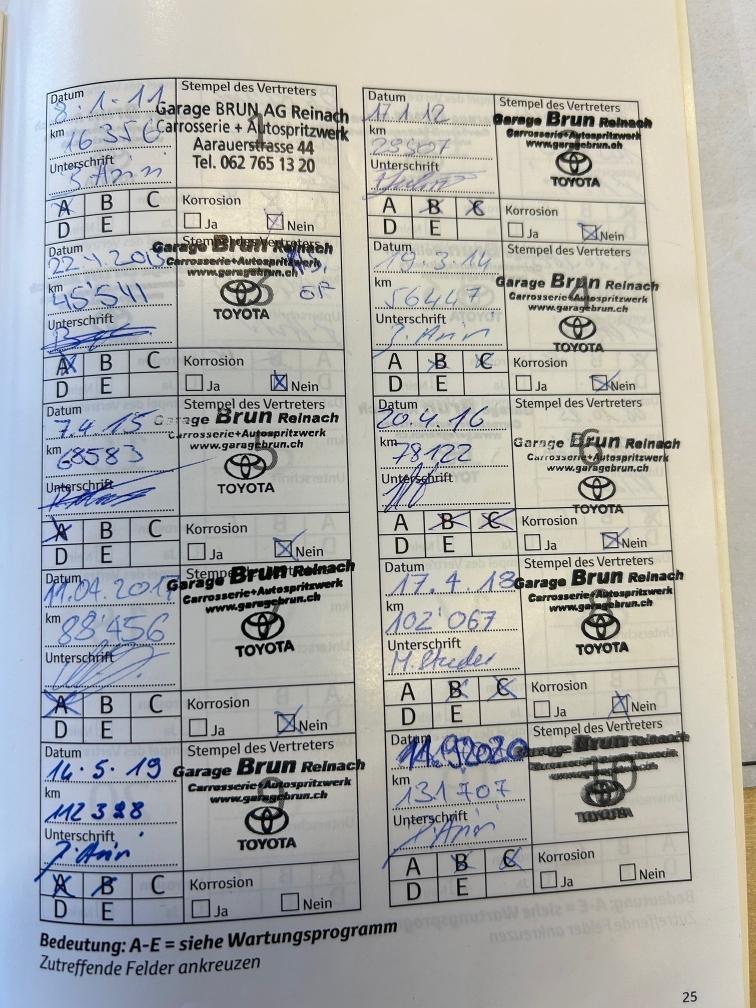 Datum
8.1.11
Stempel des Vertreters
Garage BRUN AG Reinach
Carrosserie + Autospritzwerk
Aarauerstrasse 44
Tel. 062 765 13 20
1
km
16356
Unterschrift
A B C
D E
Korrosion
Ja Nein
Datum
17.1.12
Stempel des Vertreters
Garage Brun Reinach
Carrosserie+Autospritzwerk
www.garagebrun.ch
TOYOTA
km
Unterschrift
A B C
D E
Korrosion
Ja Nein
Datum
22.4.2013
Stempel des Vertreters
Garage Brun Reinach
Carrosserie+Autospritzwerk
www.garagebrun.ch
3
TOYOTA
km
45'541
Unterschrift
A B C
D E
Korrosion
Ja Nein
Datum
19.3.14
Stempel des Vertreters
Garage Brun Reinach
Carrosserie+Autospritzwerk
www.garagebrun.ch
4
TOYOTA
km
56447
Unterschrift
A B C
D E
Korrosion
Ja Nein
Datum
7.4.15
Stempel des Vertreters
Garage Brun Reinach
Carrosserie+Autospritzwerk
www.garagebrun.ch
5
TOYOTA
km
68583
Unterschrift
A B C
D E
Korrosion
Ja Nein
Datum
20.4.16
Stempel des Vertreters
Garage Brun Reinach
Carrosserie+Autospritzwerk
www.garagebrun.ch
6
TOYOTA
km
78122
Unterschrift
A B C
D E
Korrosion
Ja Nein
Datum
11.04.2017
Stempel des Vertreters
Garage Brun Reinach
Carrosserie+Autospritzwerk
www.garagebrun.ch
7
TOYOTA
km
88'456
Unterschrift
A B C
D E
Korrosion
Ja Nein
Datum
17.4.18
Stempel des Vertreters
Garage Brun Reinach
Carrosserie+Autospritzwerk
www.garagebrun.ch
8
TOYOTA
km
102'067
Unterschrift
M. Studer
A B C
D E
Korrosion
Ja Nein
Datum
14.5.19
Stempel des Vertreters
Garage Brun Reinach
Carrosserie+Autospritzwerk
www.garagebrun.ch
9
TOYOTA
km
112328
Unterschrift
A B C
D E
Korrosion
Ja Nein
Datum
Stempel des Vertreters
Garage Brun Reinach
10
TOYOTA
km
131707
Unterschrift
A B C
D E
Korrosion
Ja Nein
Bedeutung: A-E = siehe Wartungsprogramm
Zutreffende Felder ankreuzen
25